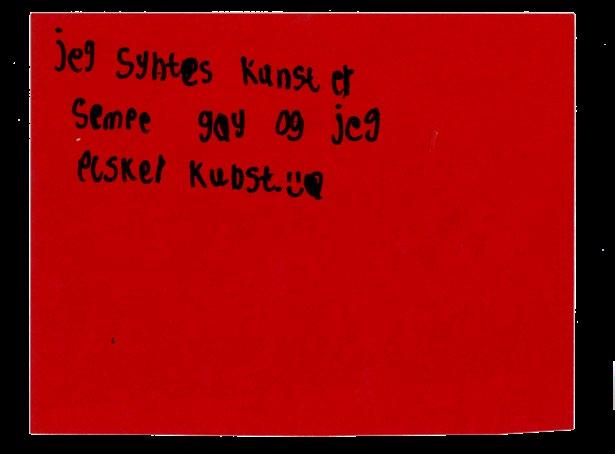 jeg syntes kunst er
sempe gøy og jeg
elsker kubst.